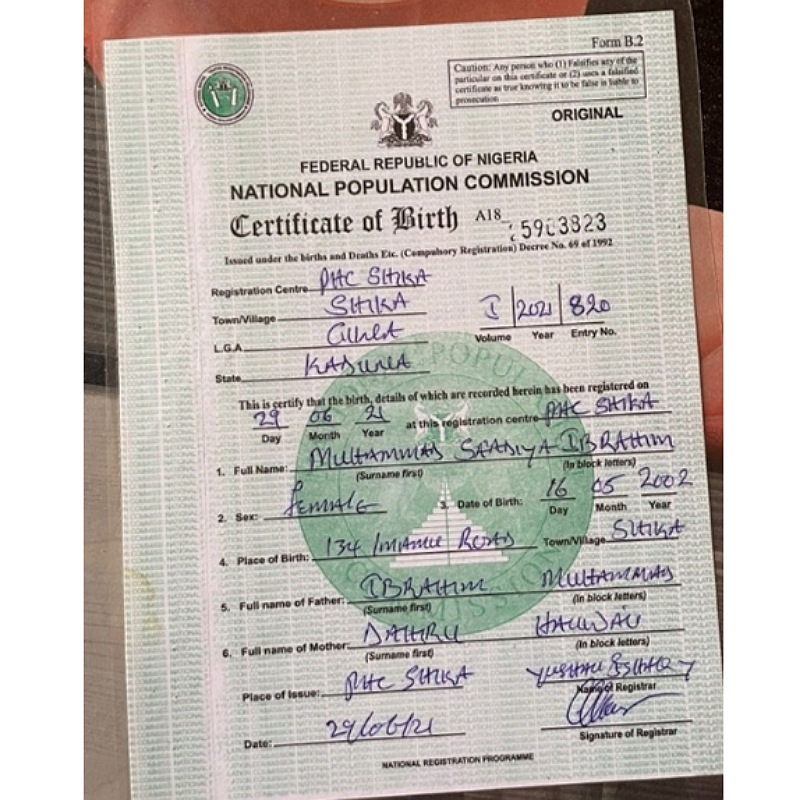 Form B.2
Caution: Any person who (1) Falsifies any of the
particular on this certificate or (2) uses a falsified
certificate as true knowing it to be false is liable to
prosecution
ORIGINAL
FEDERAL REPUBLIC OF NIGERIA
NATIONAL POPULATION COMMISSION
Certificate of Birth A18
Issued under the births and Deaths Etc. (Compulsory Registration) Decree No. 69 of 1992
Registration Centre PHC SHIKA
Town/Village SHIKA
I 2021 820
Volume Year Entry No.
L.G.A.
State KADUNA
This is certify that the birth, details of which are recorded herein has been registered on
29 06 21 at this registration centre PHC SHIKA
Day Month Year
1. Full Name: MUHAMMAD SAADIYA IBRAHIM
(Surname first) (In block letters)
2. Sex: FEMALE 3. Date of Birth: 16 05 2002
Day Month Year
4. Place of Birth: 134 Road Town/Village SHIKA
5. Full name of Father: IBRAHIM MUHAMMAD
(Surname first) (In block letters)
6. Full name of Mother: DAHIRU
(Surname first) (In block letters)
Place of Issue: PHC SHIKA
Name of Registrar
Date: 29/06/21
Signature of Registrar
NATIONAL REGISTRATION PROGRAMME